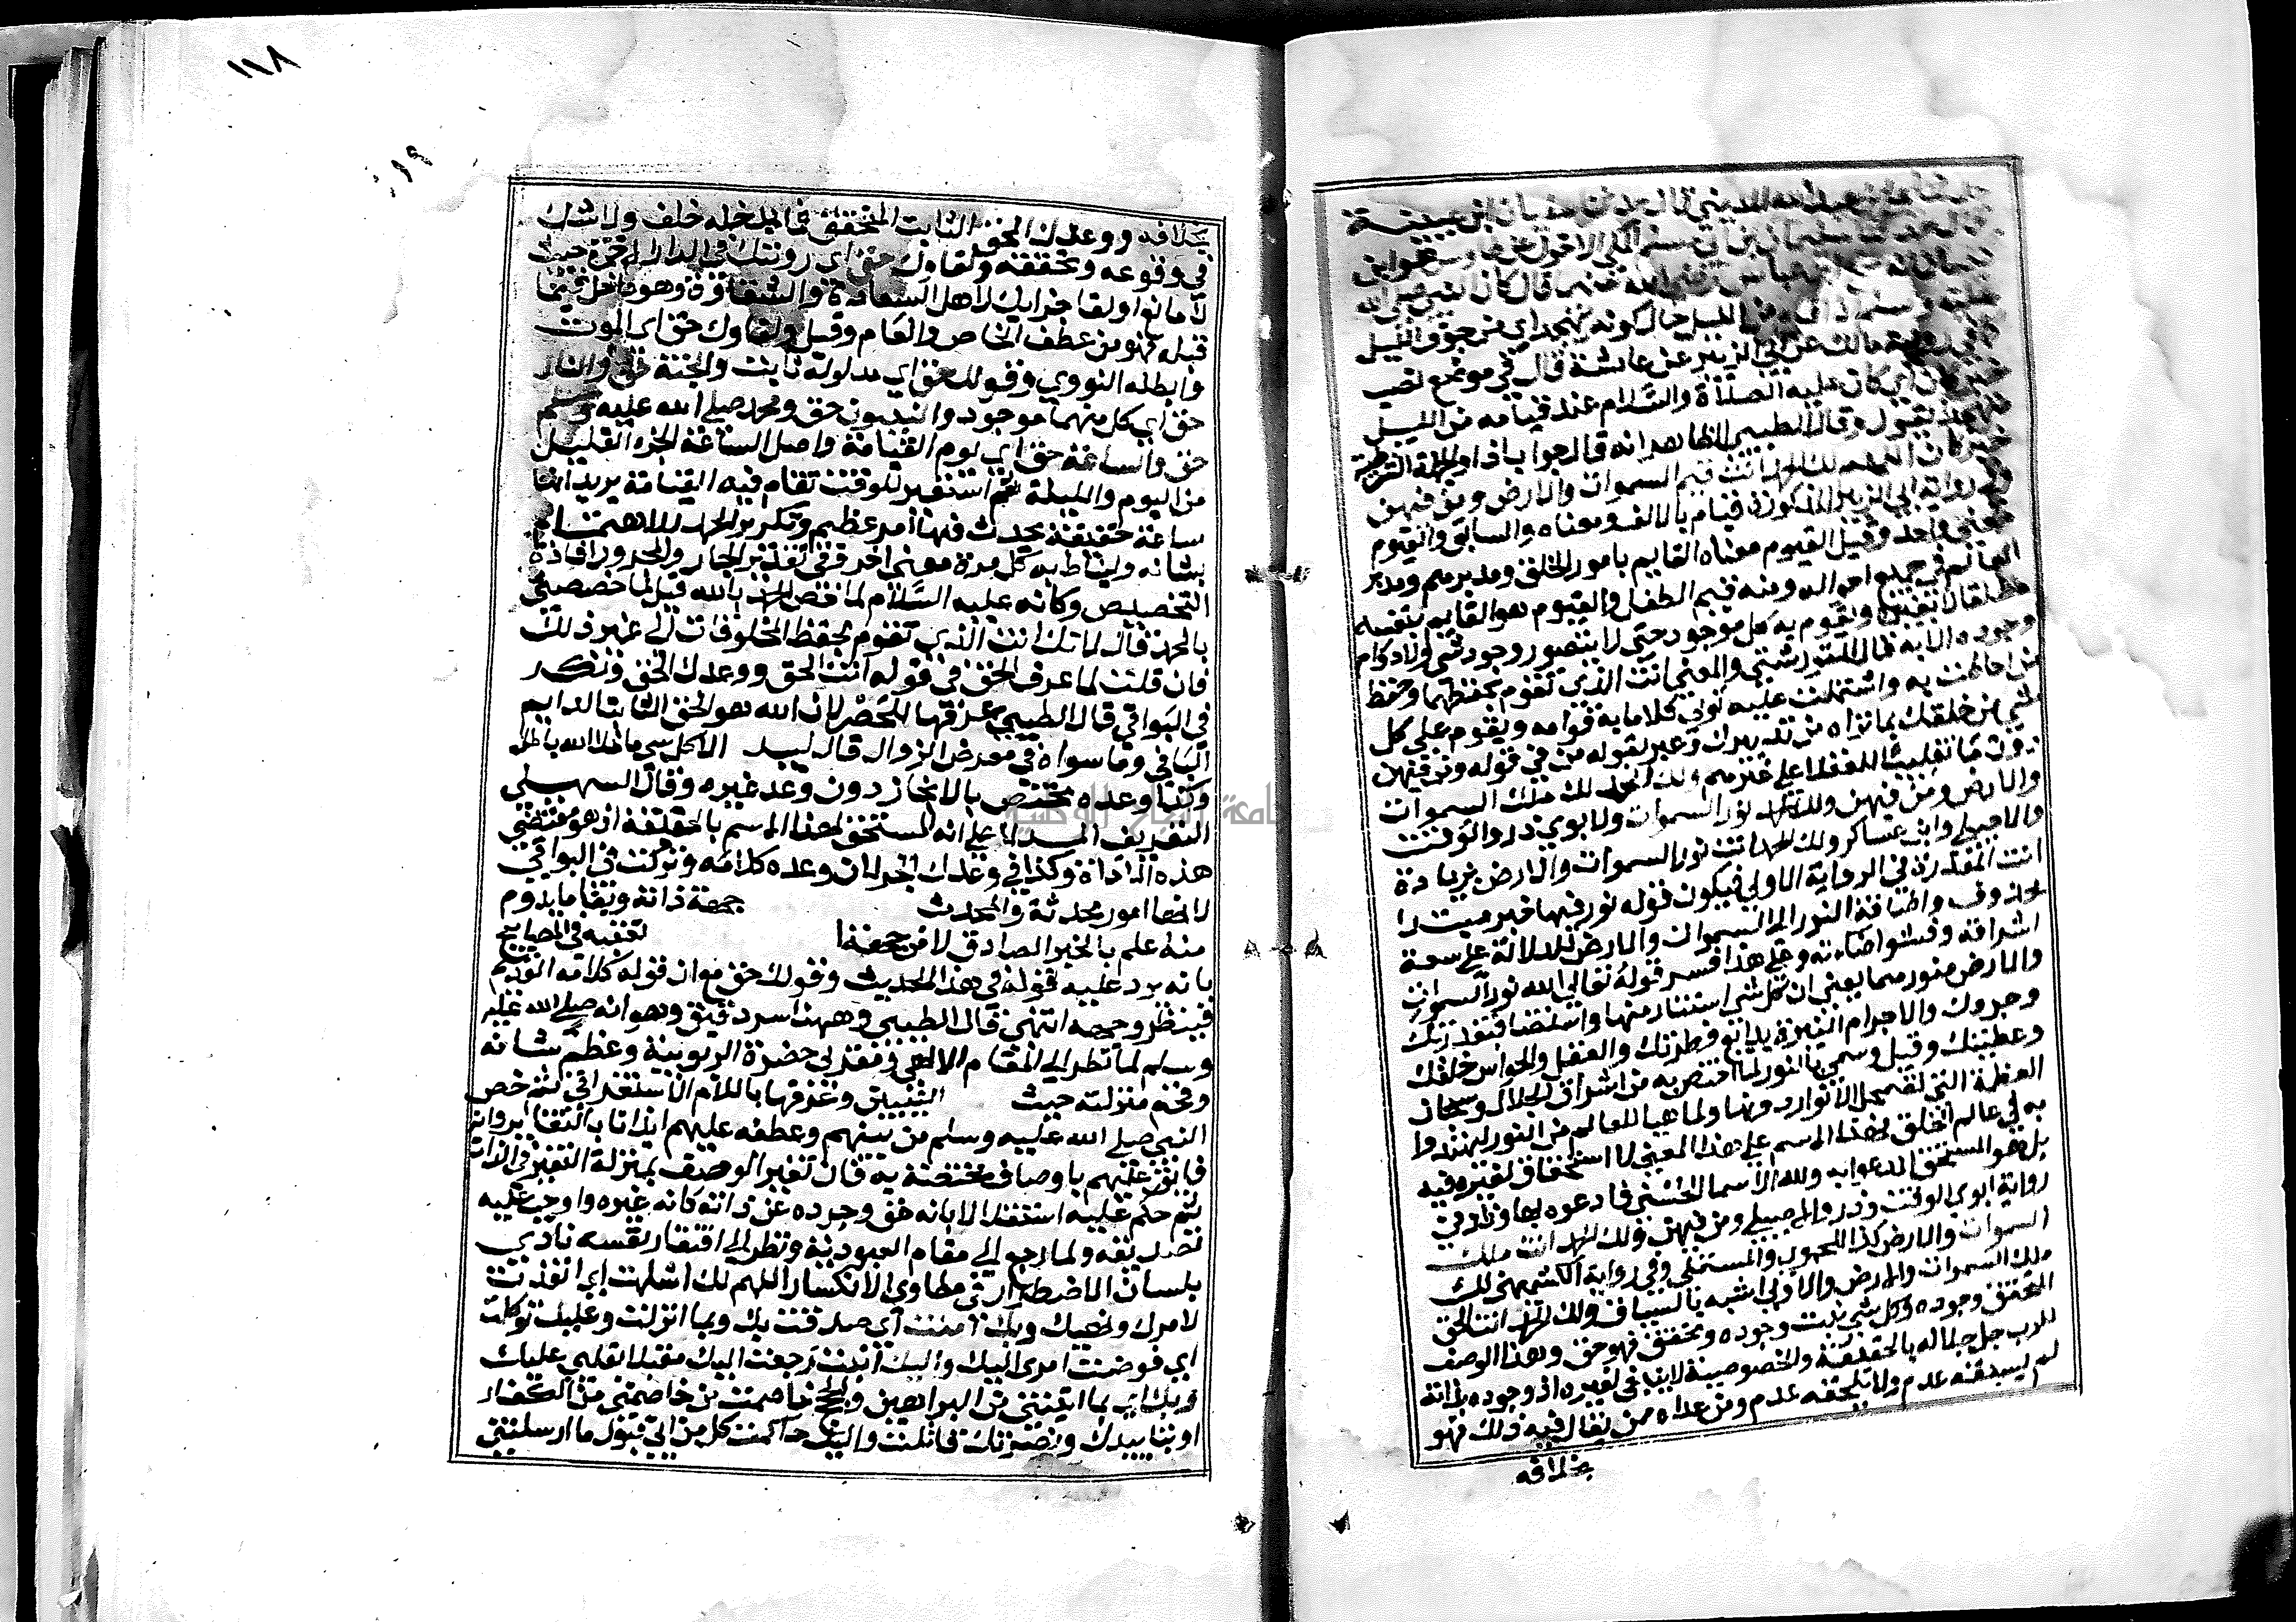 سفيان ابن عيينة
سليمان بن ابي مسلم المكي الاحول عن طاوس هو ابن
ابن عباس رضي الله عنهما قال كان النبي صلى الله
عليه وسلم اذا قام من الليل حال كونه تهجد اي من جوف الليل
مالك عن ابي الزبير عن عائشة قال في موضع نصب
خبر كان اي كان عليه الصلاة والسلام عند قيامه من الليل
يقول وقال الطيبي الظاهر انه قال جواب اذا والجملة الشرطية
خبر كان اللهم لك الحمد انت قيم السموات والارض ومن فيهن
وفي رواية ابي الزبير المذكورة قيام بالالف ومعناه والسابق والقيوم
معنى واحد وقيل القيوم معناه القايم بامور الخلق ومدبرهم ومدبر
العالم في جميع احواله ومنه قيم الطفل والقيوم هو القايم بنفسه
مطلقا لا بغيره ويقوم به كل موجود حتى لا يتصور وجود شي ولا دوام
وجوده الا به قال التوربشتي والمعنى انت الذي تقوم بحفظهما وحفظ
من احاطت به واشتملت عليه توتي كلا ما به قوامه ويقوم على كل
شي من خلقك بما تراه من تدبيرك وعبر بقوله من في قوله ومن فيهن
دون ما تغليبا للعقلا على غيرهم ولك الحمد لك ملك السموات
والارض ومن فيهن ولك الحمد نور السموات ولابوي ذر والوقت
والاصيلي وابن عساكر ولك الحمد انت نور السموات والارض بزيادة
انت المقدرة في الرواية الاولى فيكون قوله نور فيها خبر مبتدا
محذوف واضافة النور الى السموات والارض للدلالة على سعة
اشراقه وفشو اضاءته وعلى هذا فسر قوله تعالى الله نور السموات
والارض منور هما يعني ان كل شي استنار منها واستضا فبقدرتك
وجودك والاجرام النيرة بدايع فطرتك والعقل والحواس خلقك
وعطيتك وقيل وسمي بالنور لما اختص به من اشراق الجلال وسبحات
العظمة التي تضمحل الانوار دونها ولما هيا للعالم من النور ليهتدوا
به في عالم الخلق فهذا الاسم على هذا المعنى لا استحقاق لغيره فيه
بل هو المستحق المدعو به ولله الاسما الحسنى فادعوه بها وزاد في
رواية ابوي الوقت وذر والاصيلي ومن فيهن ولك الحمد انت ملك
السموات والارض كذا للحموي والمستملي وفي رواية الكشميهني لك
ملك السموات والارض والاولى اشبه بالسياق ولك الحمد انت الحق
المتحقق وجوده وكل شي ثبت وجوده وتحقق فهو حق وهذا الوصف
للرب جل جلاله بالحقيقة والخصوصية لا ينبغي لغيره اذ وجوده بذاته
لم يسبقه عدم ولا يلحقه عدم ومن عداه ممن يقال فيه ذلك فهو
بخلافه
١١٨
١١٩
بخلافه ووعدك الحق الثابت المتحقق فلا يدخله خلف ولا شك
في وقوعه وتحققه ولقاوك حق اي رويتك في الدار الاخرة حيث
لا مانع او لقا جزايك لاهل السعادة والشقاوة وهو داخل فيما
قبله فهو من عطف الخاص والعام وقيل ولقاوك حق اي الموت
وابطله النووي وقولك حق اي مدلوله ثابت والجنة حق والنار
حق اي كل منهما موجود والنبيون حق ومحمد صلى الله عليه وسلم
حق والساعة حق اي يوم القيامة واصل الساعة الجزء القليل
من اليوم والليلة ثم استعير للوقت تقام فيه القيامة يريد انها
ساعة خفيفة يحدث فيها امر عظيم وتكرير الحمد للاهتمام
بشانه وليناط به كل مرة معنى اخر وفي تقديم الجار والمجرور افادة
التخصيص وكانه عليه السلام لما خص الحمد بالله قيل لم خصصتني
بالحمد قال لانك انت الذي تقوم بحفظ المخلوقات الى غير ذلك
فان قلت لم عرف الحق في قوله انت الحق ووعدك الحق ونكر
في البواقي قال الطيبي عرفها للحصر لان الله هو الحق الثابت الدايم
الباقي وما سواه في معرض الزوال قال لبيد الا كل شي ما خلا الله باطل
وكذا وعده مختص بالانجاز دون وعد غيره وقال السهيلي
التعريف للدلالة على انه المستحق لهذا الاسم بالحقيقة اذ هو مقتضى
هذه الاداة وكذا في وعدك الحق لان وعده كلامه وتركت في البواقي
لانها امور محدثة والمحدث جهة ذاته وبقا ما يدوم
منه علم بالخبر الصادق لا من جهة تعقبه في المصابيح
بانه يرد عليه قوله في هذا الحديث وقولك حق مع ان قوله كلامه القديم
فينظر وجهه انتهى قال الطيبي وههنا سر دقيق وهو انه صلى الله عليه
وسلم لما نظر الى المقام الالهي ومقربي حضرة الربوبية وعظم شانه
وفخم منزلته حيث النبيين وعرفها باللام الاستغراقي ثم خص
النبي صلى الله عليه وسلم من بينهم وعطفه عليهم ايذانا بالتغاير وانه
فايق عليهم باوصاف مختصة به فان تغير الوصف بمنزلة التغير في الذات
ثم حكم عليه استقلالا بانه حق وجرده عن ذاته كانه غيره واوجب عليه
تصديقه ولما رجع الى مقام العبودية ونظر الى افتقار نفسه نادى
بلسان الاضطرار في مطاوي الانكسار اللهم لك اسلمت اي انقدت
لامرك ونهيك وبك امنت اي صدقت بك وبما انزلت وعليك توكلت
اي فوضت امري اليك واليك انبت رجعت اليك مقبلا بقلبي عليك
وبك اي بما اتيتني من البراهين والحجج خاصمت من خاصمني من الكفار
او بتاييدك ونصرتك قاتلت واليك حاكمت كل من ابى قبول ما ارسلتني